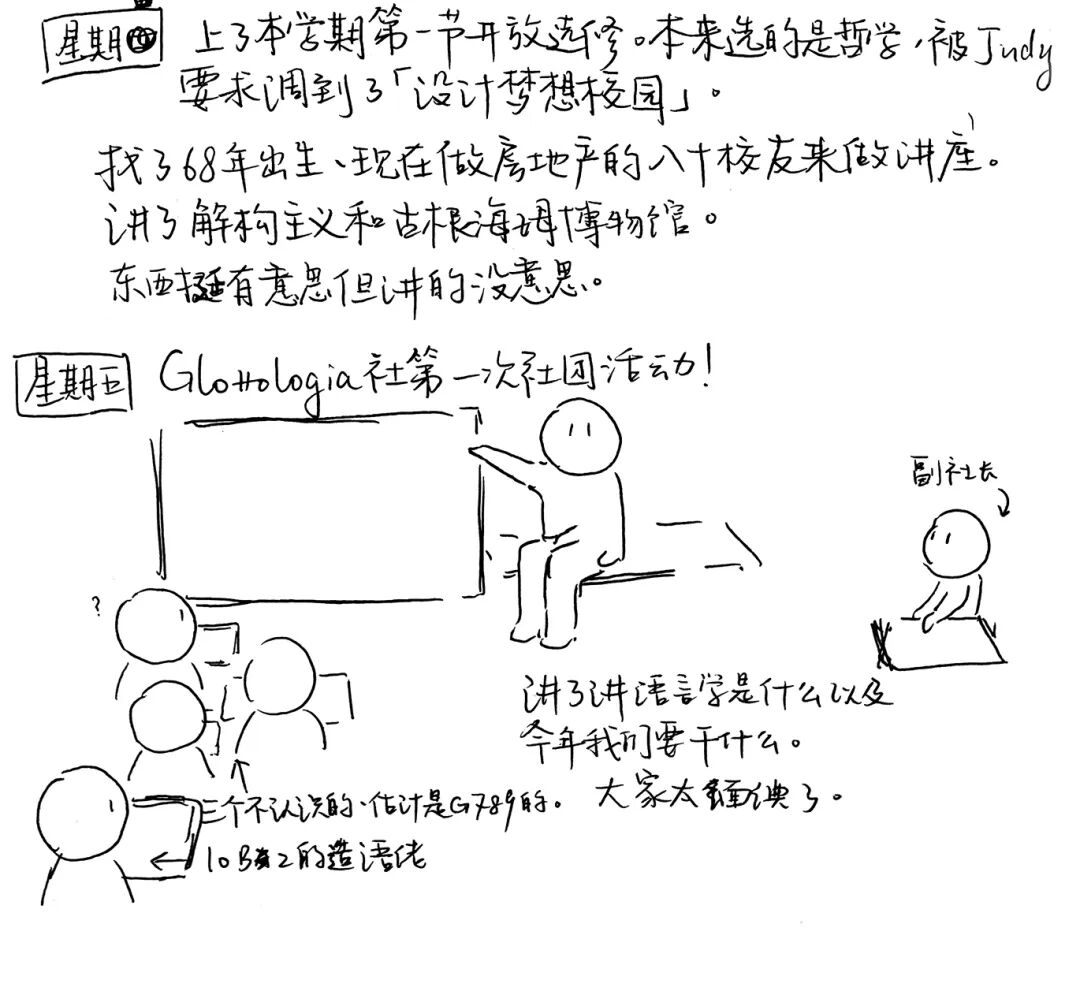 星期四 上了本学期第一节开放选修。本来选的是哲学,被Judy
要求调到了「设计梦想校园」。
找了68年出生、现在做房地产的八十校友来做讲座。
讲了解构主义和古根海姆博物馆。
东西挺有意思但讲的没意思。
星期五 Glottologia社第一次社团活动!
副社长
?
讲了讲语言学是什么以及
今年我们要干什么。
大家太腼腆了。
三个不认识的、估计是G789的。
10B班2的造语佬